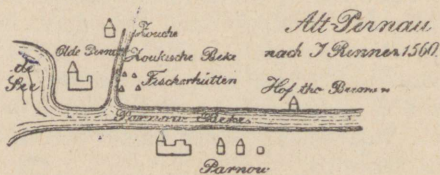 Alt-Pernau
nach J Renner 1560.
Zouche
Olde Pernow
Zoukische Beke
Fischerhütten
De
See
Hof tho
Parnow Beke
Parnow